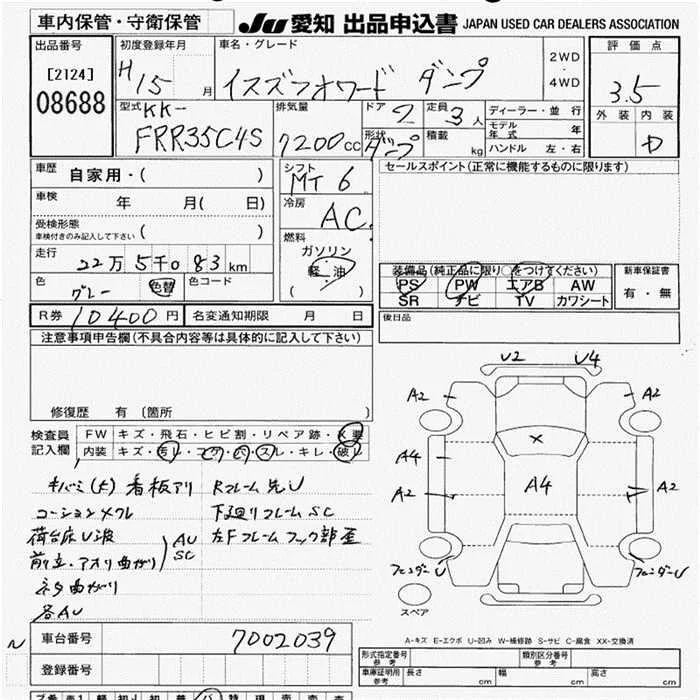 車内保管・守衛保管 JU 愛知 出品申込書 JAPAN USED CAR DEALERS ASSOCIATION
出品番号 [2124] 08688
初度登録年月 H15 月
車名・グレード イスズフォワード ダンプ
2WD ・ 4WD
評価点 3.5
外装 内装 D
型式 KK- FRR35C4S
排気量 7200cc
ドア 2
形状 ダンプ
定員 3人
積載 kg
ディーラー・並行
モデル年式 年
ハンドル 左・右
車歴 自家用・( )
車検 年 月( 日)
受検形態 ( )
車検付きのみ記入して下さい
走行 22万5千083km
色 グレー 色替 色コード
シフト MT 6
冷房 AC
燃料 ガソリン 軽・油 ( )
セールスポイント(正常に機能するものに限ります)
装備品(純正品に限り○をつけてください)
PS PW エアB AW
SR ナビ TV カワシート
新車保証書 有・無
R券 10400円 名変通知期限 月 日
後日品
注意事項申告欄(不具合内容等は具体的に記入して下さい)
修復歴 有 〔箇所 〕
検査員記入欄
FW キズ・飛石・ヒビ割・リペア跡・X要
内装 キズ・汚レ・コゲ・穴・スレ・キレ・破レ
キバミ(大) 看板アリ Rフレーム先U
コーションメクレ 下廻リフレームSC
荷台床U波 左Fフレームフック部歪
前立、アオリ曲がり AU SC
ネタ曲がり
各AU
U2 U4
A2 A2
A4 X
A2 A4 A2
フェンダーU フェンダーU
スペア
A-キズ E-エクボ U-凹み W-補修跡 S-サビ C-腐食 XX-交換済
N
車台番号 7002039
登録番号
形式指定番号 参考 類別区分番号 参考
車庫証明用 参考 長さ cm 幅 cm 高さ cm